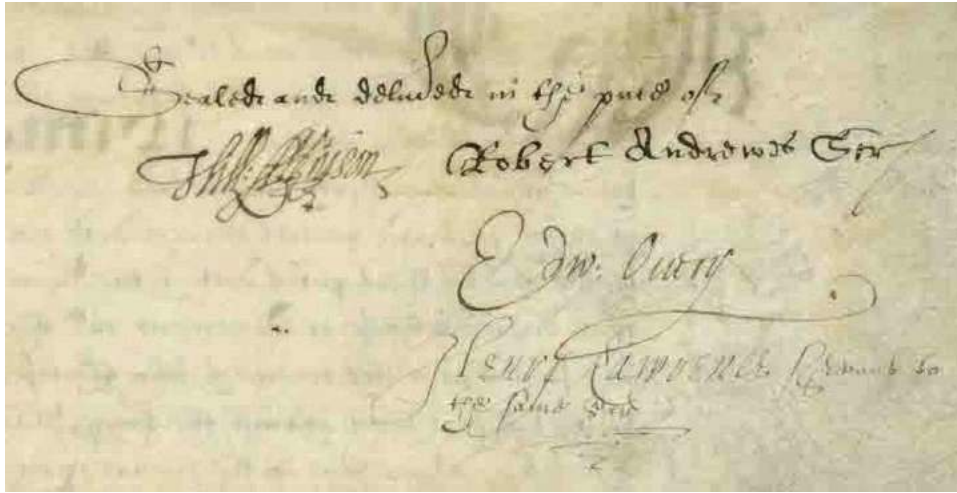 Sealed and deliured in the pnce of
Will: Atkinson Robert Andrewes Scr
Edw: Ouery
Henry Lawrence servant to
the same Scr